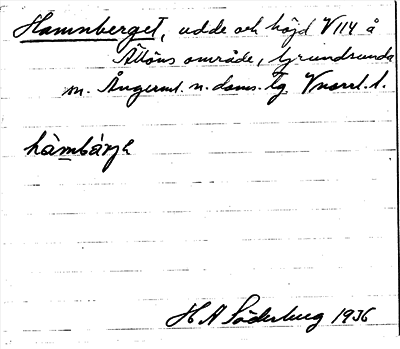 Hamnberget, udde och höjd V 114 å
Ällöns område, Grundsunda
sn. Ångerml. n. doms. tg Vnorrl. l.
hàmbárjə
H A Söderberg 1936